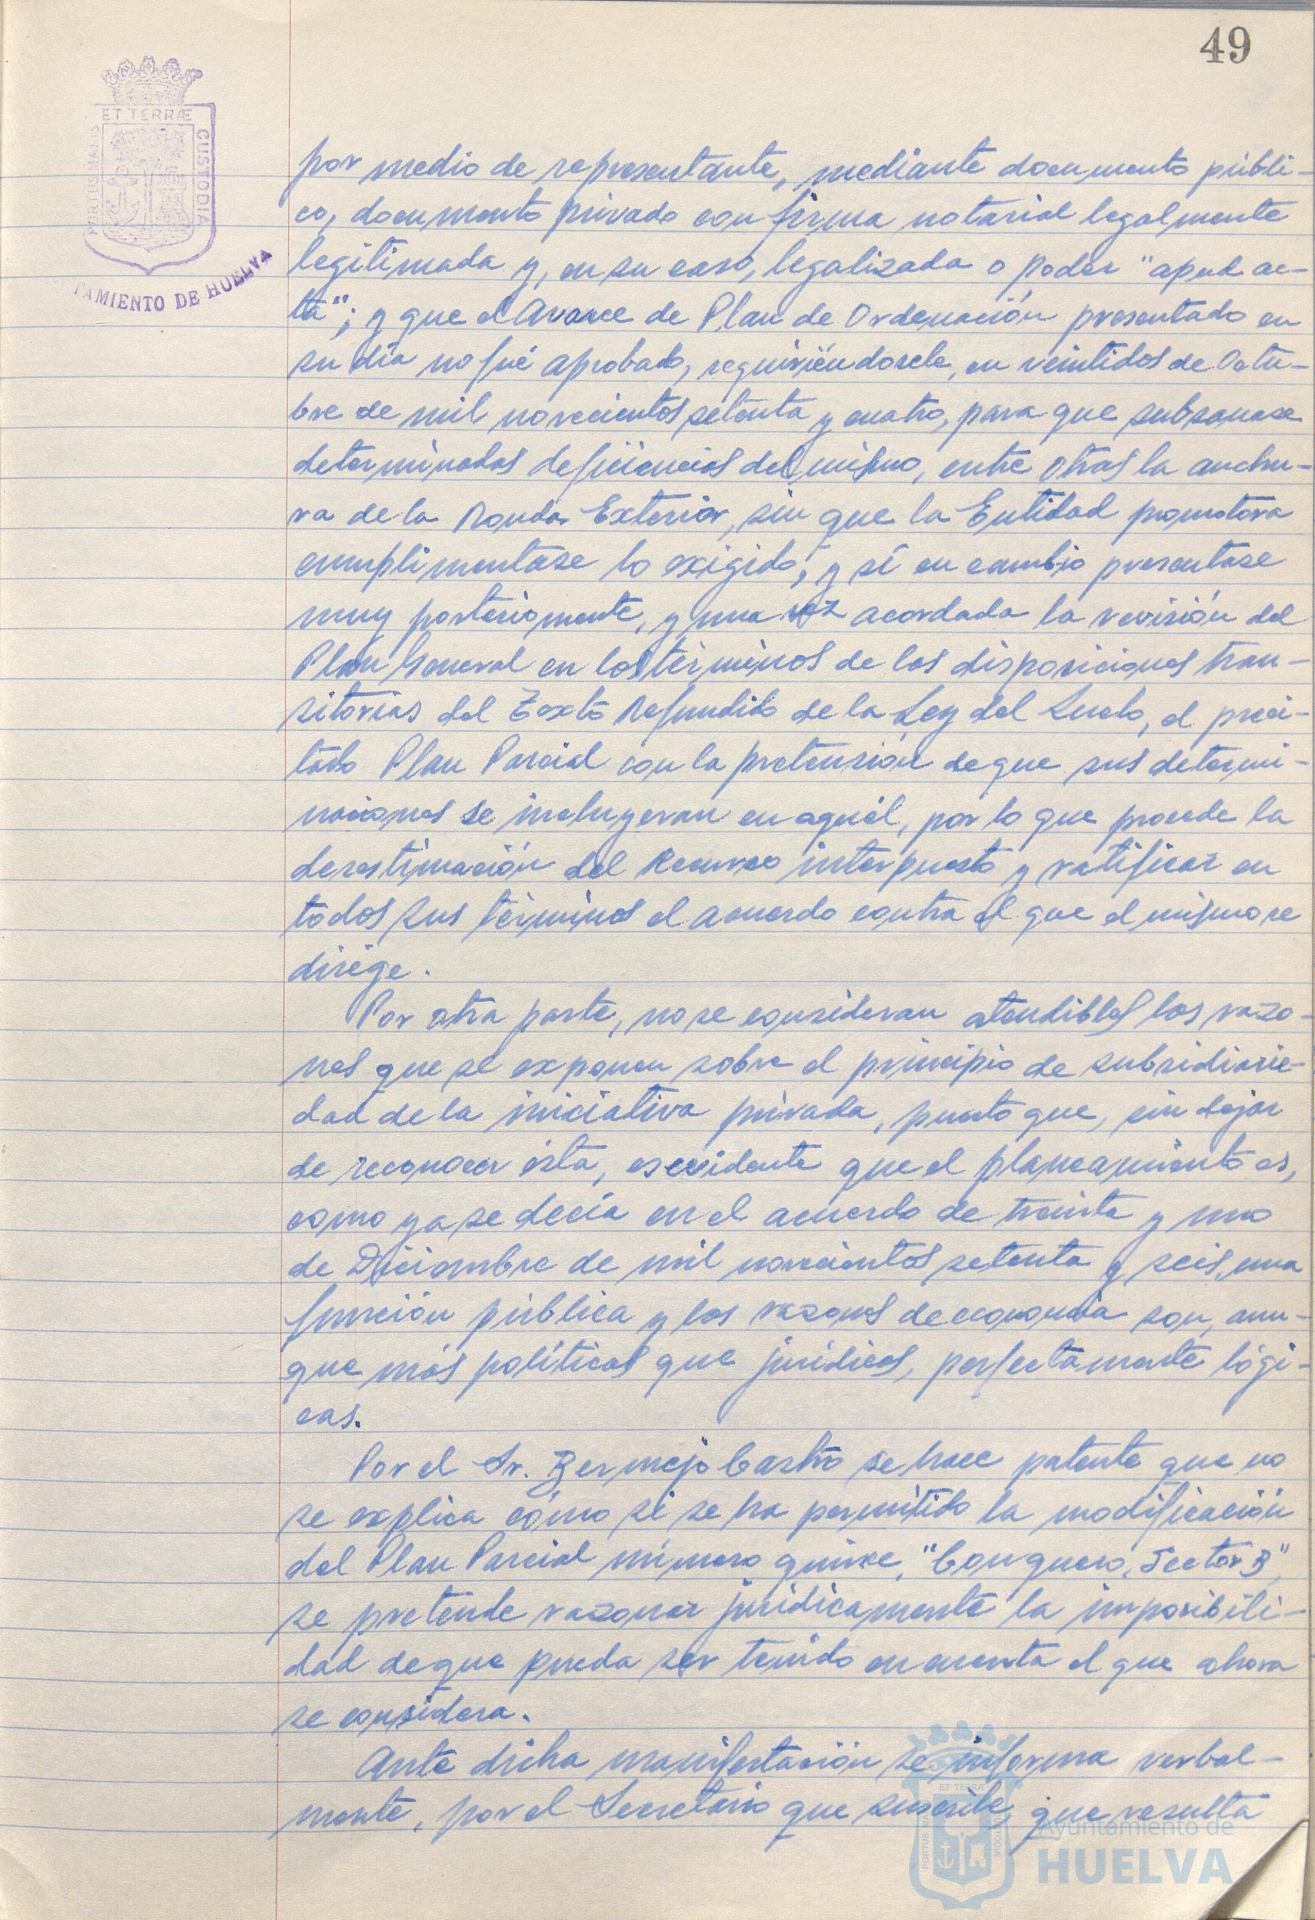 49
ET TERRÆ
PORTUS MARIS
CUSTODIA
TAMIENTO DE HUELVA
por medio de representante, mediante documento públi-
co, documento privado con firma notarial legalmente
legitimada y, en su caso, legalizada o poder "apud ac-
ta"; y que el Avance de Plan de Ordenación presentado en
su día no fué aprobado, requiriéndosele, en veintidos de Octu-
bre de mil novecientos setenta y cuatro, para que subsanase
determinadas deficiencias del mismo, entre otras la anchu-
ra de la Ronda Exterior, sin que la Entidad promotora
cumplimentase lo exigido; y sí en cambio presentase
muy posteriormente, y una vez acordada la revisión del
Plan General en los términos de las disposiciones tran-
sitorias del Texto Refundido de la Ley del Suelo, el preci-
tado Plan Parcial con la pretensión de que sus determi-
naciones se incluyeran en aquél, por lo que procede la
desestimación del Recurso interpuesto y ratificar en
todos sus términos el acuerdo contra el que el mismo se
dirige.
Por otra parte, no se consideran atendibles las razo-
nes que se exponen sobre el principio de subsidiarie-
dad de la iniciativa privada, puesto que, sin dejar
de reconocer ésta, es evidente que el planeamiento es,
como ya se decía en el acuerdo de treinta y uno
de Diciembre de mil novecientos setenta y seis, una
función pública y las razones de economía son, aun-
que más políticas que jurídicas, perfectamente lógi-
cas.
Por el Sr. Bermejo Castro se hace patente que no
se explica cómo si se ha permitido la modificación
del Plan Parcial número quince, "Conquero, Sector B",
se pretende razonar jurídicamente la imposibili-
dad de que pueda ser tenido en cuenta el que ahora
se considera.
Ante dicha manifestación se informa verbal-
mente, por el Secretario que suscribe, que resulta
ET TERRÆ
Ayuntamiento de
HUELVA